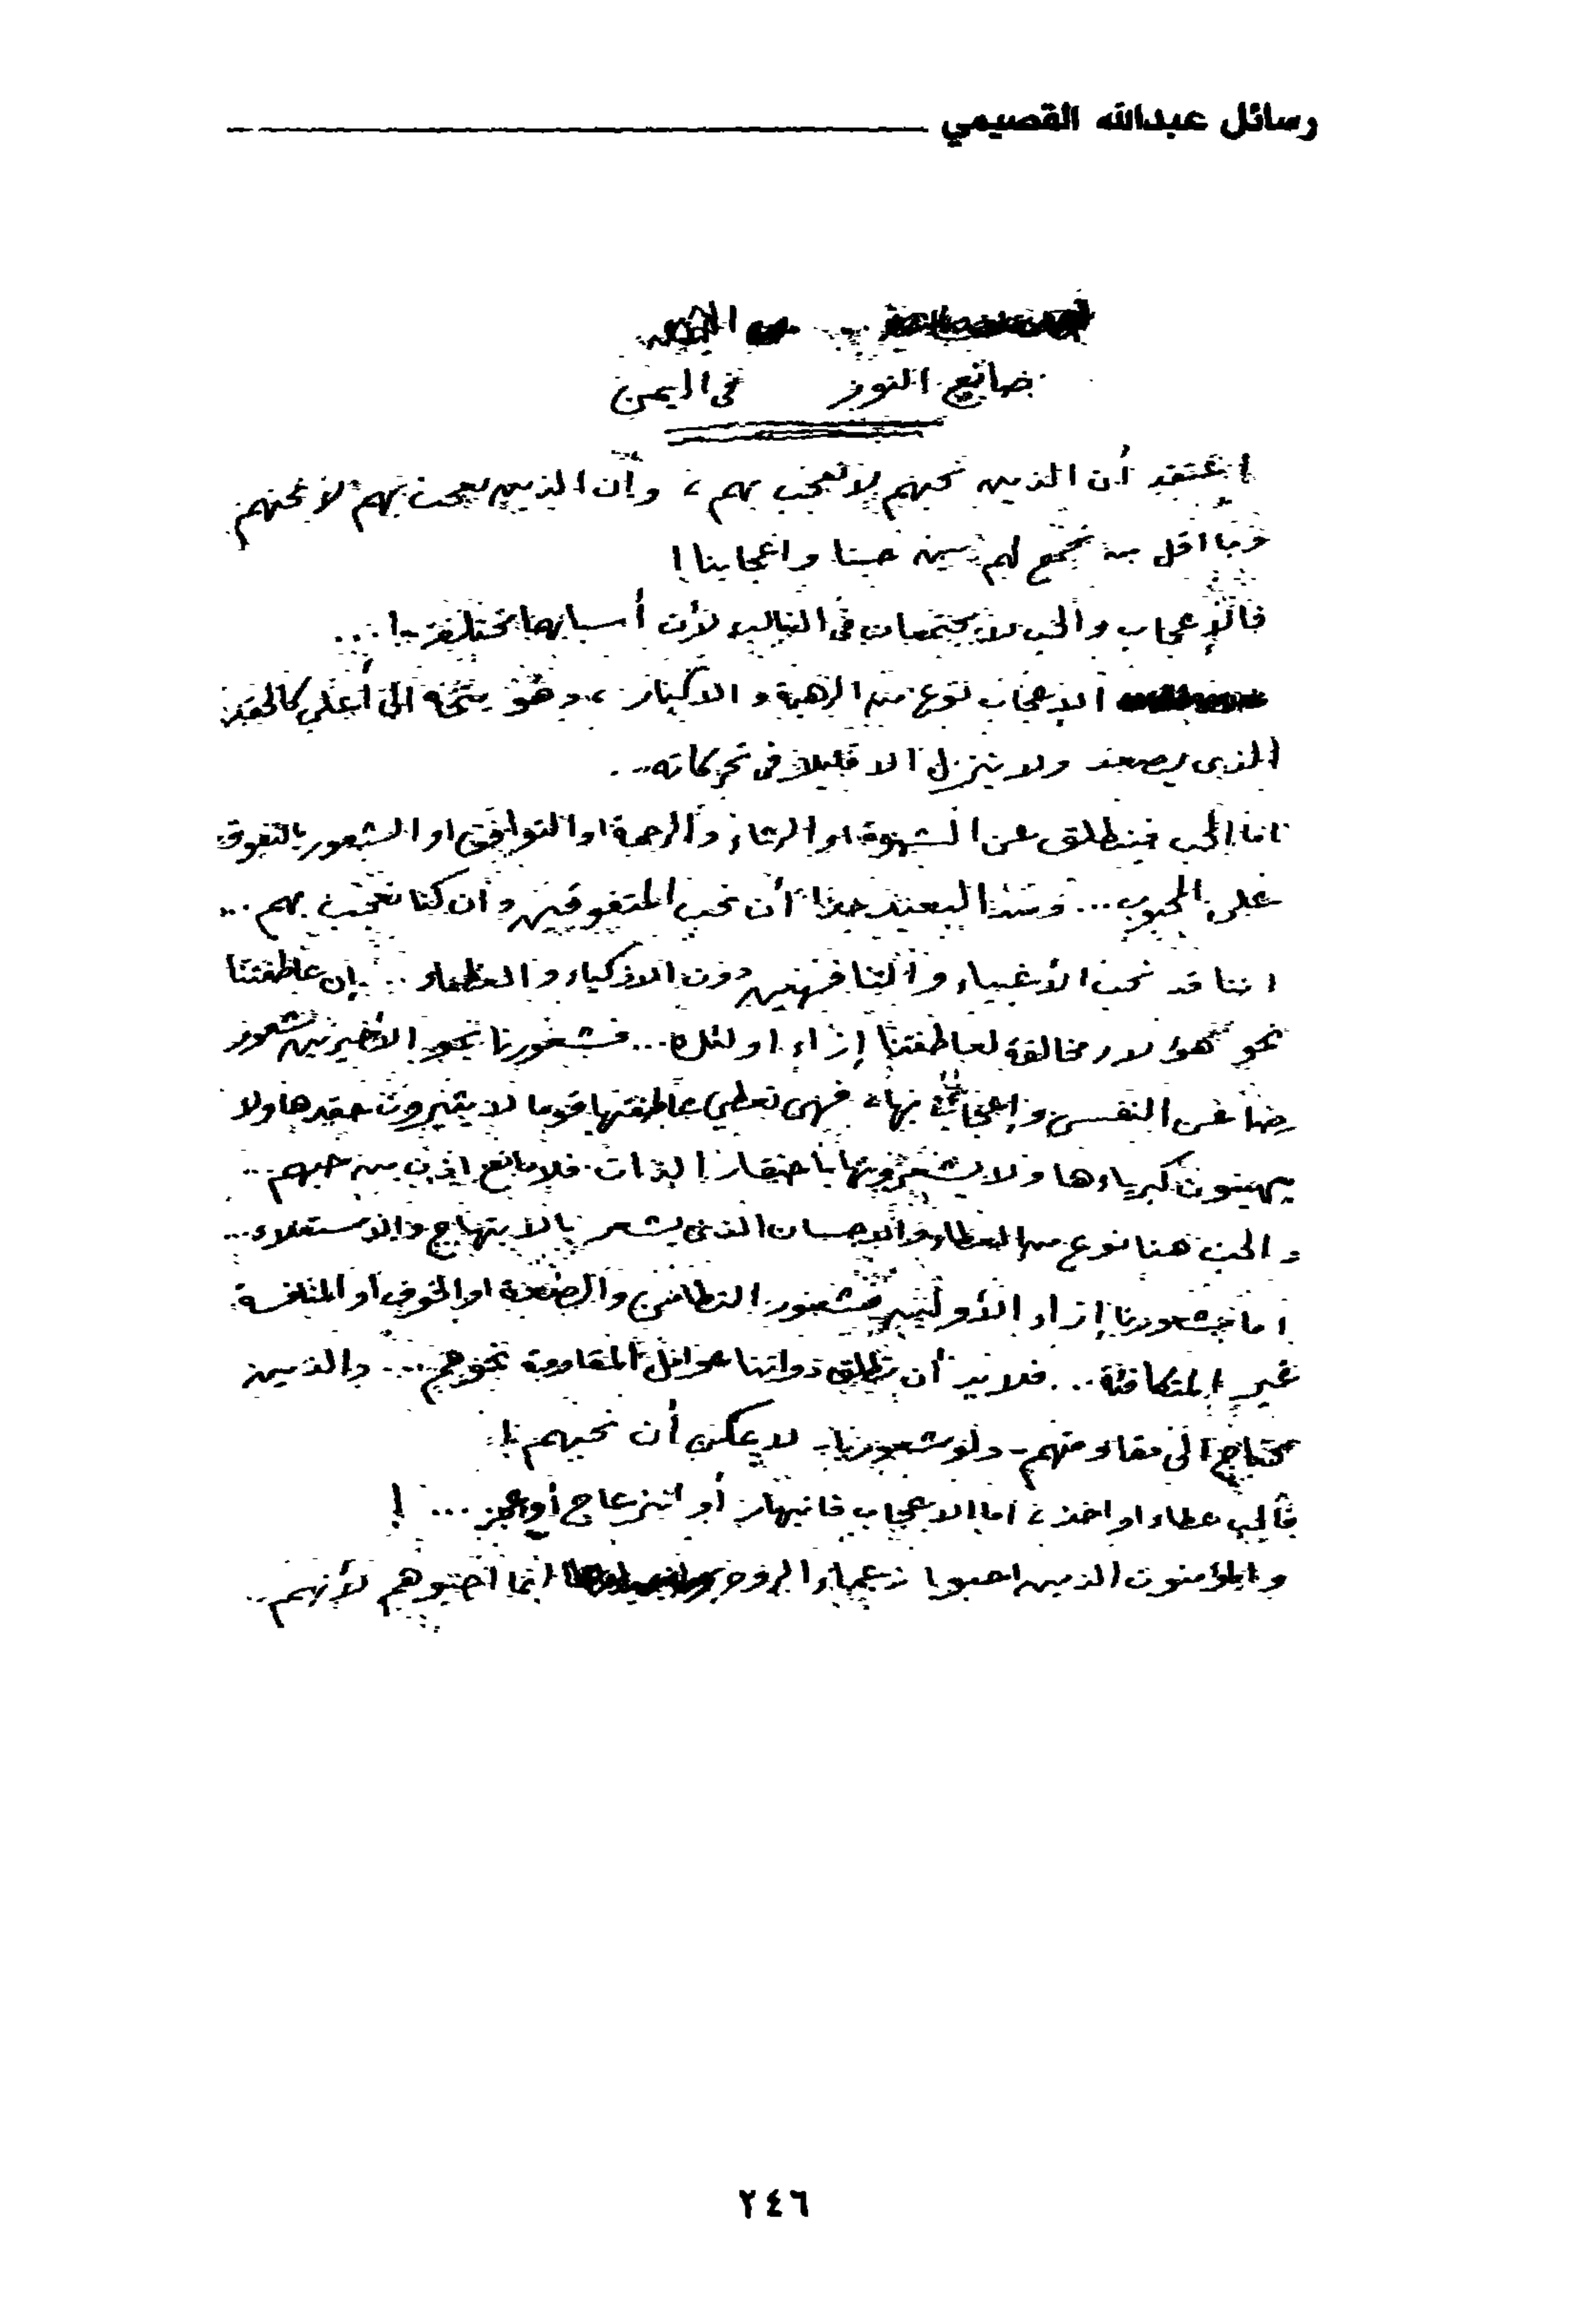 رسائل عبدالله القصيمي
صانع النور في اليمن
اعتقد أن الذين نحبهم لا نعجب بهم ، وأن الذين نعجب بهم لا نحبهم
وما اقل من نجمع لهم بين حبنا واعجابنا !
فالإعجاب والحب لا يجتمعان في الغالب لأن أسبابهما مختلفة ! ...
الإعجاب نوع من الرهبة والاكبار ، وهو يتجه الى أعلى كالحقد
الذي يصعد ولا ينزل الا قليلا في تحركاته ..
اما الحب فينطلق عن الشهوة او الرثاء والرحمة او التوافق او الشعور بالتفوق
على المحبوب ... ومن البعيد جدا أن نحب المتفوقين وان كنا نعجب بهم ...
اننا قد نحب الأغبياء والتافهين دون الاذكياء والعظماء .. إن عاطفتنا
نحو هؤلاء مخالفة لعاطفتنا إزاء اولئك ... فشعورنا نحو الأخيرين شعور
رضا عن النفس وإعجاب بها ، فهي تعطي عاطفتها قوما لا يثيرون حقدها ولا
يهينون كبرياءها ولا يشعرونها باحتقار الذات . فلا مانع اذن من حبهم ..
والحب هنا نوع من العطاء والإحسان الذي يشعر بالابتهاج والاستعلاء ...
اما شعورنا إزاء الأولين فشعور التطامن والضعة او الخوف أو المنافسة
غير المتكافئة ... فلا بد أن تطلق ذواتنا عوامل المقاومة نحوهم ... والذين
نحتاج الى مقاومتهم - ولو شعوريا - لا يمكن أن نحبهم !
فالحب عطاء او اخذ ، اما الاعجاب فانبهار أو انزعاج أو عجز ... !
والمؤمنون الذين احبوا زعماء الروح انما احبوهم لأنهم ..
٢٤٦